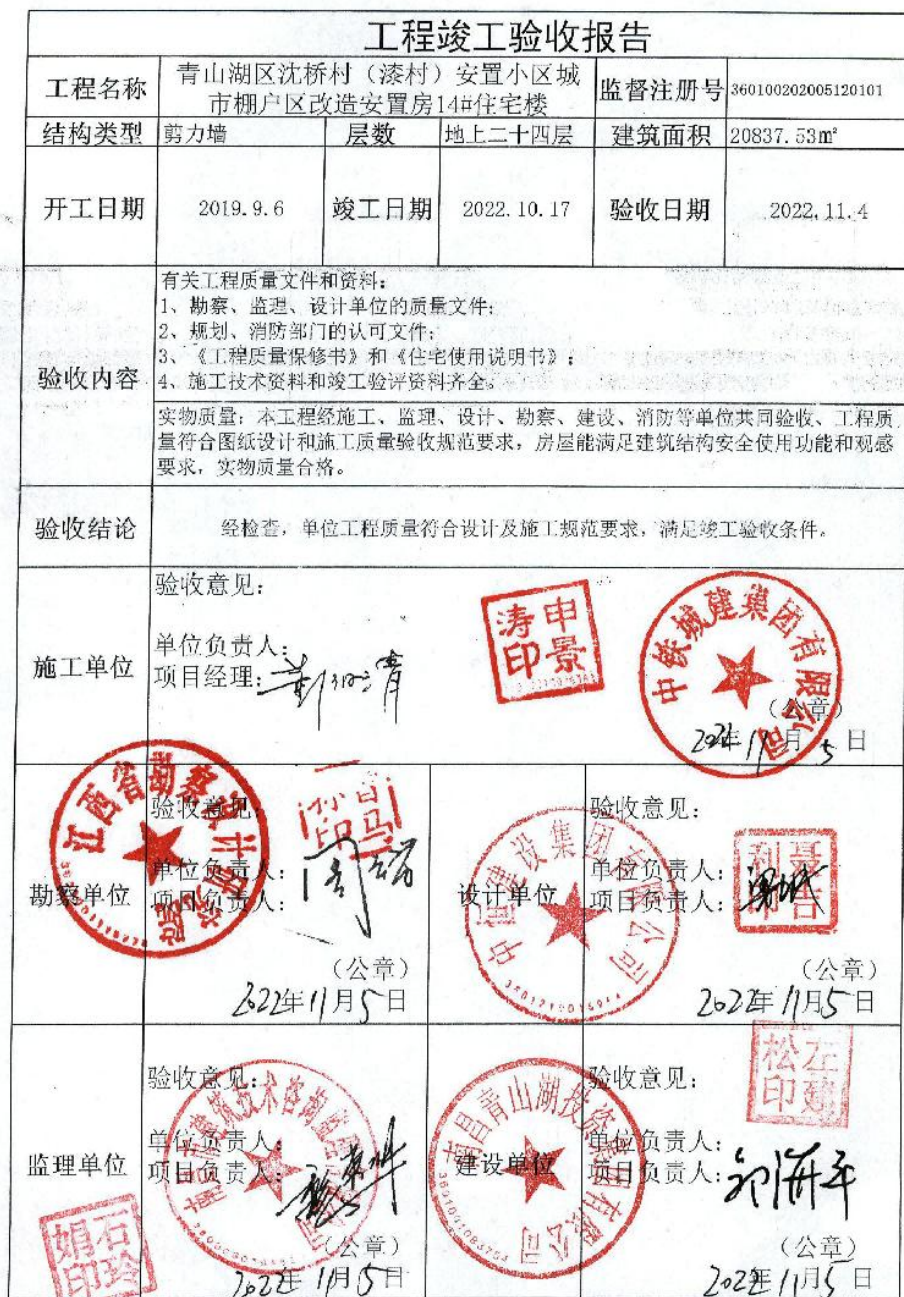 工程竣工验收报告
工程名称
青山湖区沈桥村（漆村）安置小区城
市棚户区改造安置房14#住宅楼
监督注册号
360100202005120101
结构类型
剪力墙
层数
地上二十四层
建筑面积
20837.53m²
开工日期
2019.9.6
竣工日期
2022.10.17
验收日期
2022.11.4
验收内容
有关工程质量文件和资料：
1、勘察、监理、设计单位的质量文件；
2、规划、消防部门的认可文件；
3、《工程质量保修书》和《住宅使用说明书》；
4、施工技术资料和竣工验评资料齐全。
实物质量：本工程经施工、监理、设计、勘察、建设、消防等单位共同验收、工程质
量符合图纸设计和施工质量验收规范要求，房屋能满足建筑结构安全使用功能和观感
要求，实物质量合格。
验收结论
经检查，单位工程质量符合设计及施工规范要求，满足竣工验收条件。
施工单位
验收意见：
单位负责人：
项目经理：
申景涛印
中铁城建集团有限公司
（公章）
2022年11月5日
勘察单位
验收意见：
单位负责人：
项目负责人：
江西省勘察设计
（公章）
2022年11月5日
设计单位
验收意见：
单位负责人：
项目负责人：
中恒建设集团有限公司
（公章）
2022年11月5日
监理单位
验收意见：
单位负责人：
项目负责人：
石玲娟印
（公章）
2022年11月5日
建设单位
验收意见：
单位负责人：
项目负责人：
左建松印
南昌青山湖投资
有限公司
邓海平
（公章）
2022年11月5日